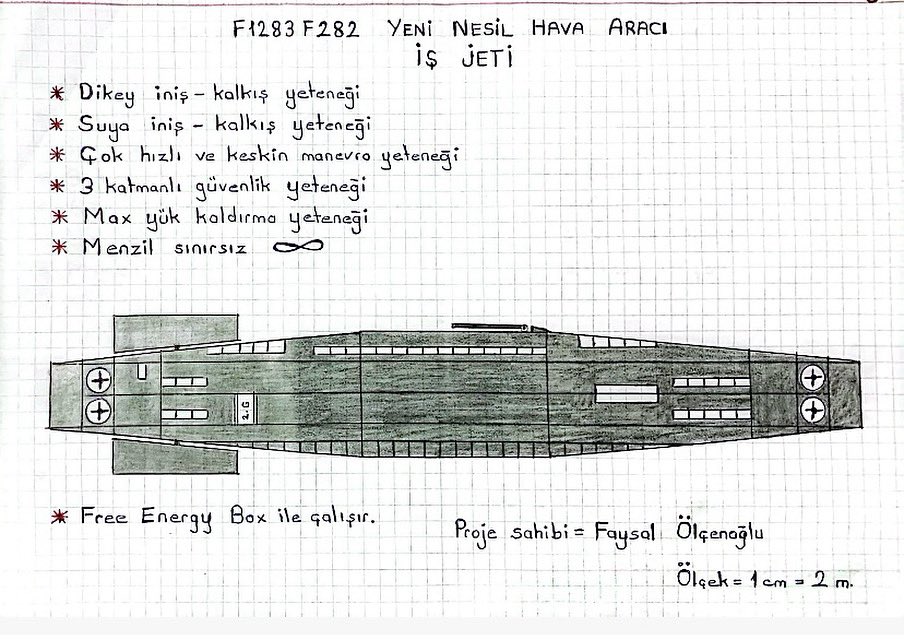 F1283 F282 YENİ NESİL HAVA ARACI
İŞ JETİ
* Dikey iniş - kalkış yeteneği
* Suya iniş - kalkış yeteneği
* Çok hızlı ve keskin manevra yeteneği
* 3 katmanlı güvenlik yeteneği
* Max yük kaldırma yeteneği
* Menzil sınırsız ∞
2.G
* Free Energy Box ile çalışır.
Proje sahibi = Faysal Ölçenoğlu
Ölçek = 1 cm = 2 m.